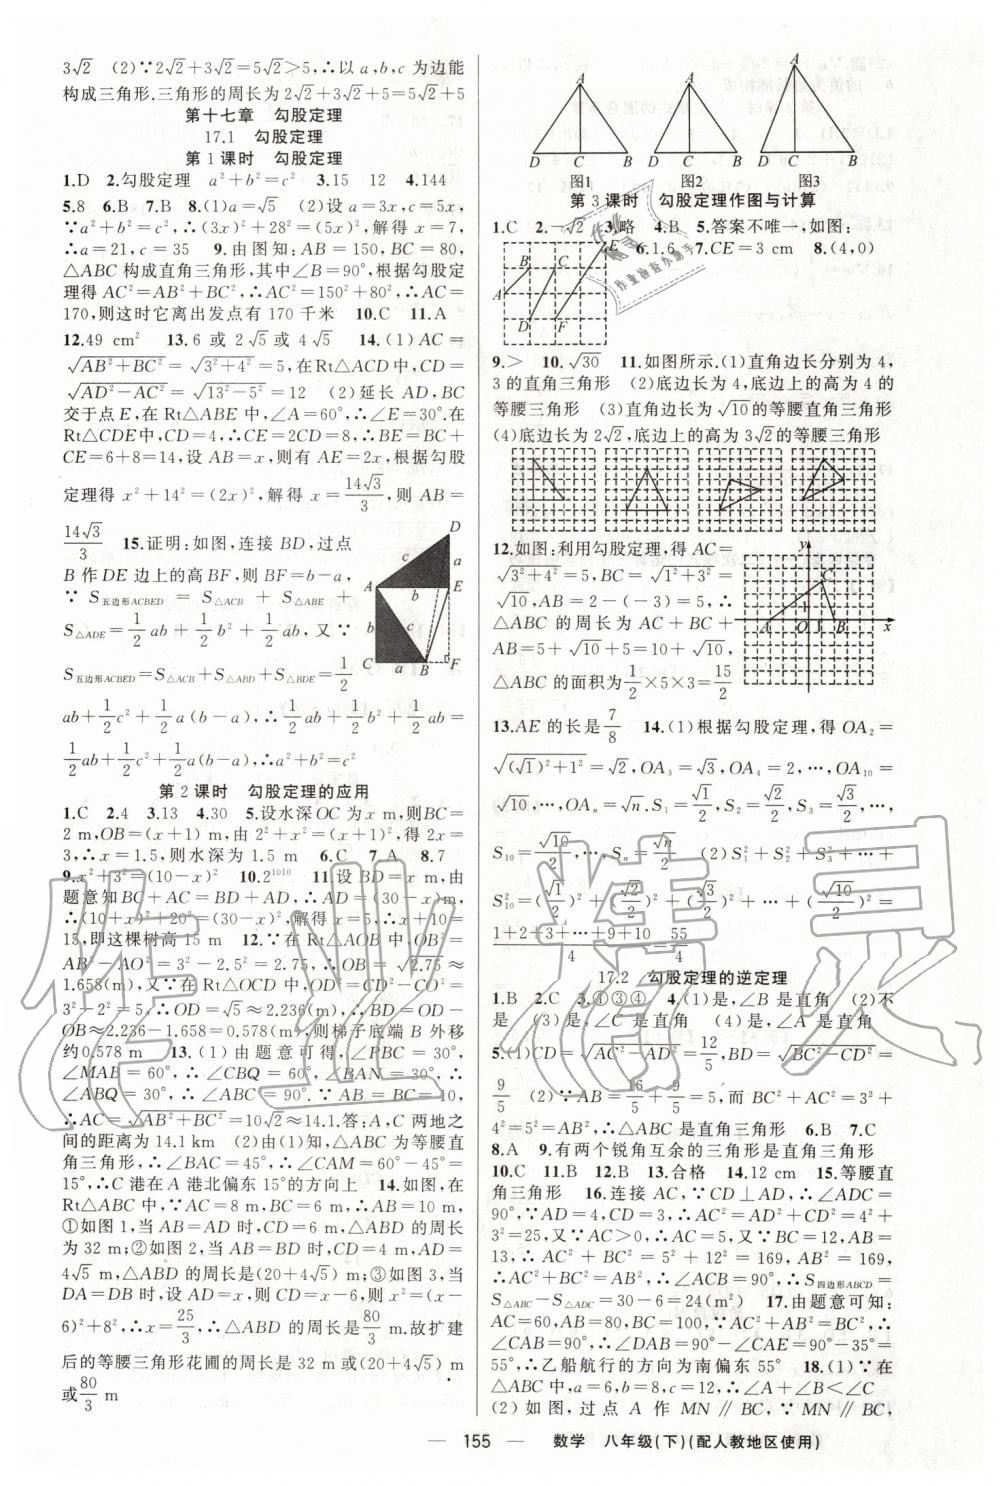 3√2　(2)∵2√2+3√2=5√2>5,∴以 a,b,c 为边能
构成三角形.三角形的周长为2√2+3√2+5=5√2+5
第十七章　勾股定理
17.1　勾股定理
第1课时　勾股定理
1.D　2.勾股定理　a²+b²=c²　3.15　12　4.144
5.8　6.B　7.B　8.(1)a=√5　(2)设 a=3x,c=5x,
∵a²+b²=c²,∴(3x)²+28²=(5x)²,解得 x=7,
∴a=21,c=35　9.由图知:AB=150,BC=80,
△ABC 构成直角三角形,其中∠B=90°,根据勾股定
理得 AC²=AB²+BC²,∴AC²=150²+80²,∴AC=
170,则这时它离出发点有 170 千米　10.C　11.A
12.49 cm²　13.6 或 2√5 或 4√5　14.(1)AC=
√(AB²+BC²)=√(3²+4²)=5,在Rt△ACD中,CD=
√(AD²-AC²)=√(13²-5²)=12　(2)延长 AD,BC
交于点E,在Rt△ABE中,∠A=60°,∴∠E=30°.在
Rt△CDE中,CD=4,∴CE=2CD=8,∴BE=BC+
CE=6+8=14,设 AB=x,则有 AE=2x,根据勾股
定理得 x²+14²=(2x)²,解得 x=14√3/3,则 AB=
14√3/3　15.证明:如图,连接 BD,过点
B 作DE 边上的高BF,则 BF=b-a,
∵ S五边形ACBED = S△ACB + S△ABE +
S△ADE=1/2ab+1/2b²+1/2ab,又∵
S五边形ACBED=S△ACB+S△ABD+S△BDE=1/2
ab+1/2c²+1/2a(b-a),∴1/2ab+1/2b²+1/2ab=
1/2ab+1/2c²+1/2a(b-a),∴a²+b²=c²
D
c a
A b E
b c
C a B F
第2课时　勾股定理的应用
1.C　2.4　3.13　4.30　5.设水深OC为x m,则BC=
2 m,OB=(x+1) m,由 2²+x²=(x+1)²,得 2x=
3,∴x=1.5,则水深为 1.5 m　6.C　7.A　8.7
9.x²+3²=(10-x)²　10.2¹⁰¹⁰　11.设 BD=x m,由
题意知BC+AC=BD+AD,∴AD=(30-x)m,
∴(10+x)²+20²=(30-x)²,解得 x=5,∴x+10=
15,即这棵树高 15 m　12.∵在 Rt△AOB 中,OB²=
AB²-AO²=3²-2.5²=2.75,∴OB=√2.75≈
1.658(m),又∵在Rt△OCD中,OD=√(CD²-OC²)=
√(3²-2²)=√5≈2.236(m),∴BD=OD-
OB≈2.236-1.658=0.578(m),则梯子底端 B 外移
约0.578 m　13.(1)由题意可得,∠PBC=30°,
∠MAB=60°,∴∠CBQ=60°,∠BAN=30°,
∴∠ABQ=30°,∴∠ABC=90°.∵AB=BC=10,
∴AC=√(AB²+BC²)=10√2≈14.1.答:A,C 两地之
间的距离为 14.1 km　(2)由(1)知,△ABC 为等腰直
角三角形,∴∠BAC=45°,∴∠CAM=60°-45°=
15°,∴C 港在A 港北偏东15°的方向上　14.如图,在
Rt△ABC中,∵AC=8 m,BC=6 m,∴AB=10 m,
①如图1,当AB=AD时,CD=6 m,△ABD的周长
为 32 m;②如图 2,当 AB=BD 时,CD=4 m,AD=
4√5 m,△ABD 的周长是(20+4√5)m;③如图 3,当
DA=DB时,设AD=x,则CD=x-6,则x²=(x-
6)²+8²,∴x=25/3,∴△ABD 的周长是80/3 m.故扩建
后的等腰三角形花圃的周长是 32 m或(20+4√5) m
或80/3 m
A　A　A
D C B　D C B　D C B
图1　图2　图3
第3课时　勾股定理作图与计算
1.C　2.-√2　3.略　4.B　5.答案不唯一,如图:
6.1.6　7.CE=3 cm　8.(4,0)
E
B C
A
D F
9.>　10.√30　11.如图所示.(1)直角边长分别为 4,
3的直角三角形　(2)底边长为4,底边上的高为4的
等腰三角形　(3)直角边长为√10的等腰直角三角形
(4)底边长为2√2,底边上的高为3√2的等腰三角形
12.如图:利用勾股定理,得 AC=
√(3²+4²)=5,BC=√(1²+3²)=
√10,AB=2-(-3)=5,
△ABC 的周长为 AC+BC+
AB=5+√10+5=10+√10,
△ABC 的面积为1/2×5×3=15/2
y
C
A O 1 B x
13.AE的长是7/8　14.(1)根据勾股定理,得 OA₂=
√((√1)²+1²)=√2,OA₃=√3,OA₄=√4,…,OA₁₀=
√10,…,OAₙ=√n.S₁=√1/2,S₂=√2/2,S₃=√3/2,…,
S₁₀=√10/2,…,Sₙ=√n/2　(2)S₁²+S₂²+S₃²+…+
S₁₀²=(√1/2)²+(√2/2)²+(√3/2)²+…+(√10/2)²=
(1+2+3+…+9+10)/4=55/4
17.2　勾股定理的逆定理
1.B　2.C　3.①③④　4.(1)是,∠B 是直角　(2)不
是　(3)是,∠C 是直角　(4)是,∠A 是直角
5.(1)CD=√(AC²-AD²)=12/5,BD=√(BC²-CD²)=
9/5　(2)∵AB=16/5+9/5=5,而 BC²+AC²=3²+
4²=5²=AB²,∴△ABC是直角三角形　6.B　7.C
8.A　9.有两个锐角互余的三角形是直角三角形
10.C　11.B　12.B　13.合格　14.12 cm　15.等腰直
角三角形　16.连接 AC,∵CD⊥AD,∴∠ADC=
90°,∵AD=4,CD=3,∴AC²=AD²+CD²=4²+
3²=25,又∵AC>0,∴AC=5,又∵BC=12,AB=
13,∴AC²+BC²=5²+12²=169,AB²=169,
∴AC²+BC²=AB²,∴∠ACB=90°,∴S四边形ABCD=
S△ABC-S△ADC=30-6=24(m²)　17.由题意可知:
AC=60,AB=80,BC=100,∵AC²+AB²=BC²,
∴∠CAB=90°,∴∠DAB=90°-∠CAE=90°-35°=
55°,∴乙船航行的方向为南偏东 55°　18.(1)∵在
△ABC中,a=6,b=8,c=12,∴∠A+∠B<∠C
(2)如图,过点 A 作 MN∥BC,∵MN∥BC,
155　数学　八年级(下)(配人教地区使用)
作业精灵